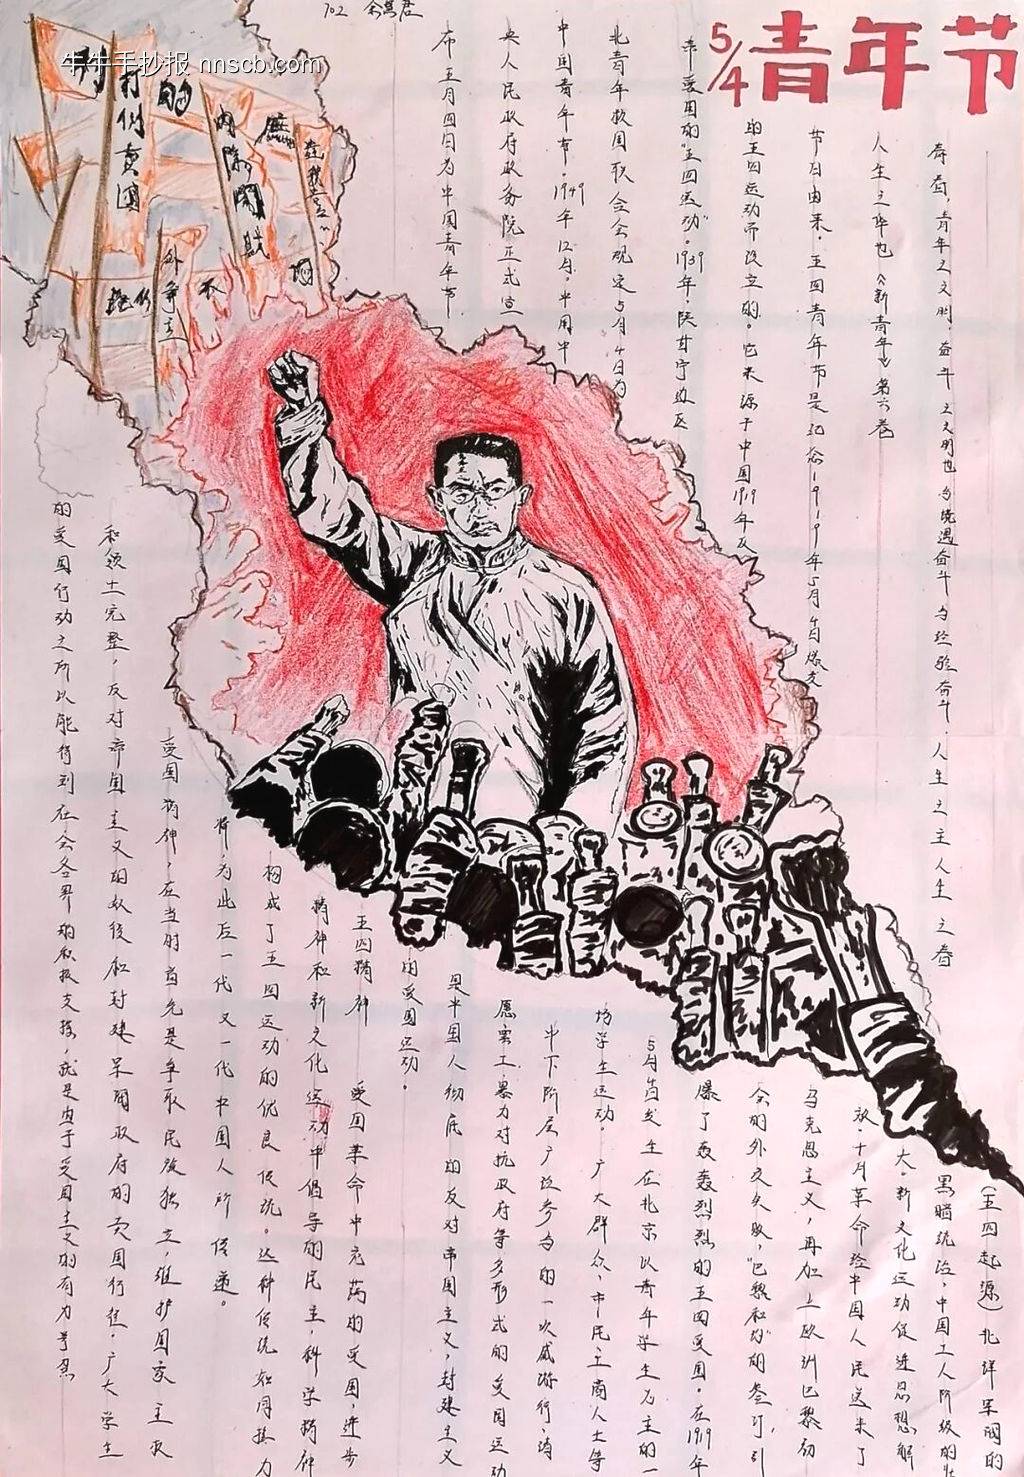 702
5/4 青年节
牛牛手抄报 nnscb.com
青春，青年之文明，奋斗之文明也，与境遇奋斗，与经验奋斗。人生之王，人生之春
人生之华也《新青年》第六卷
节日由来。五四青年节是纪念1919年5月4日爆发
的五四运动而设立的。它来源于中国1919年反
帝爱国的“五四运动”。1939年，陕甘宁边区
北青年救国联合会规定5月4日为
中国青年节。1949年12月，中国中
央人民政府政务院正式宣
布五月四日为中国青年节
打倒卖国
内除国
外争主
（五四起源）北洋军阀的
黑暗统治，中国工人阶级的壮
大。新文化运动促进思想解
放，十月革命给中国人民送来了
马克思主义，再加上欧洲巴黎
会的外交失败，“巴黎和约”的签订，引
爆了轰轰烈烈的五四爱国。在1919年
5月4日发生在北京以青年学生为主的一
场学生运动，广大群众，市民，工商人士等
中下阶层广泛参与的一次威游行，请
愿罢工暴力对抗政府等多形式的爱国运动
是中国人彻底的反对帝国主义，封建主义
的爱国运动。
五四精神 爱国革命中充满的爱国，进步
精神和新文化运动中倡导的民主，科学精神
构成了五四运动的优良传统。这种传统如同接力
将为此后一代又一代中国人所传递。
爱国精神，在当时首先是争取民族独立，维护国家主权
和领土完整，反对帝国主义的奴役和封建军阀政府的卖国行径。广大学生
的爱国行动之所以能得到社会各界的积极支援，就是由于爱国主义的有力号召